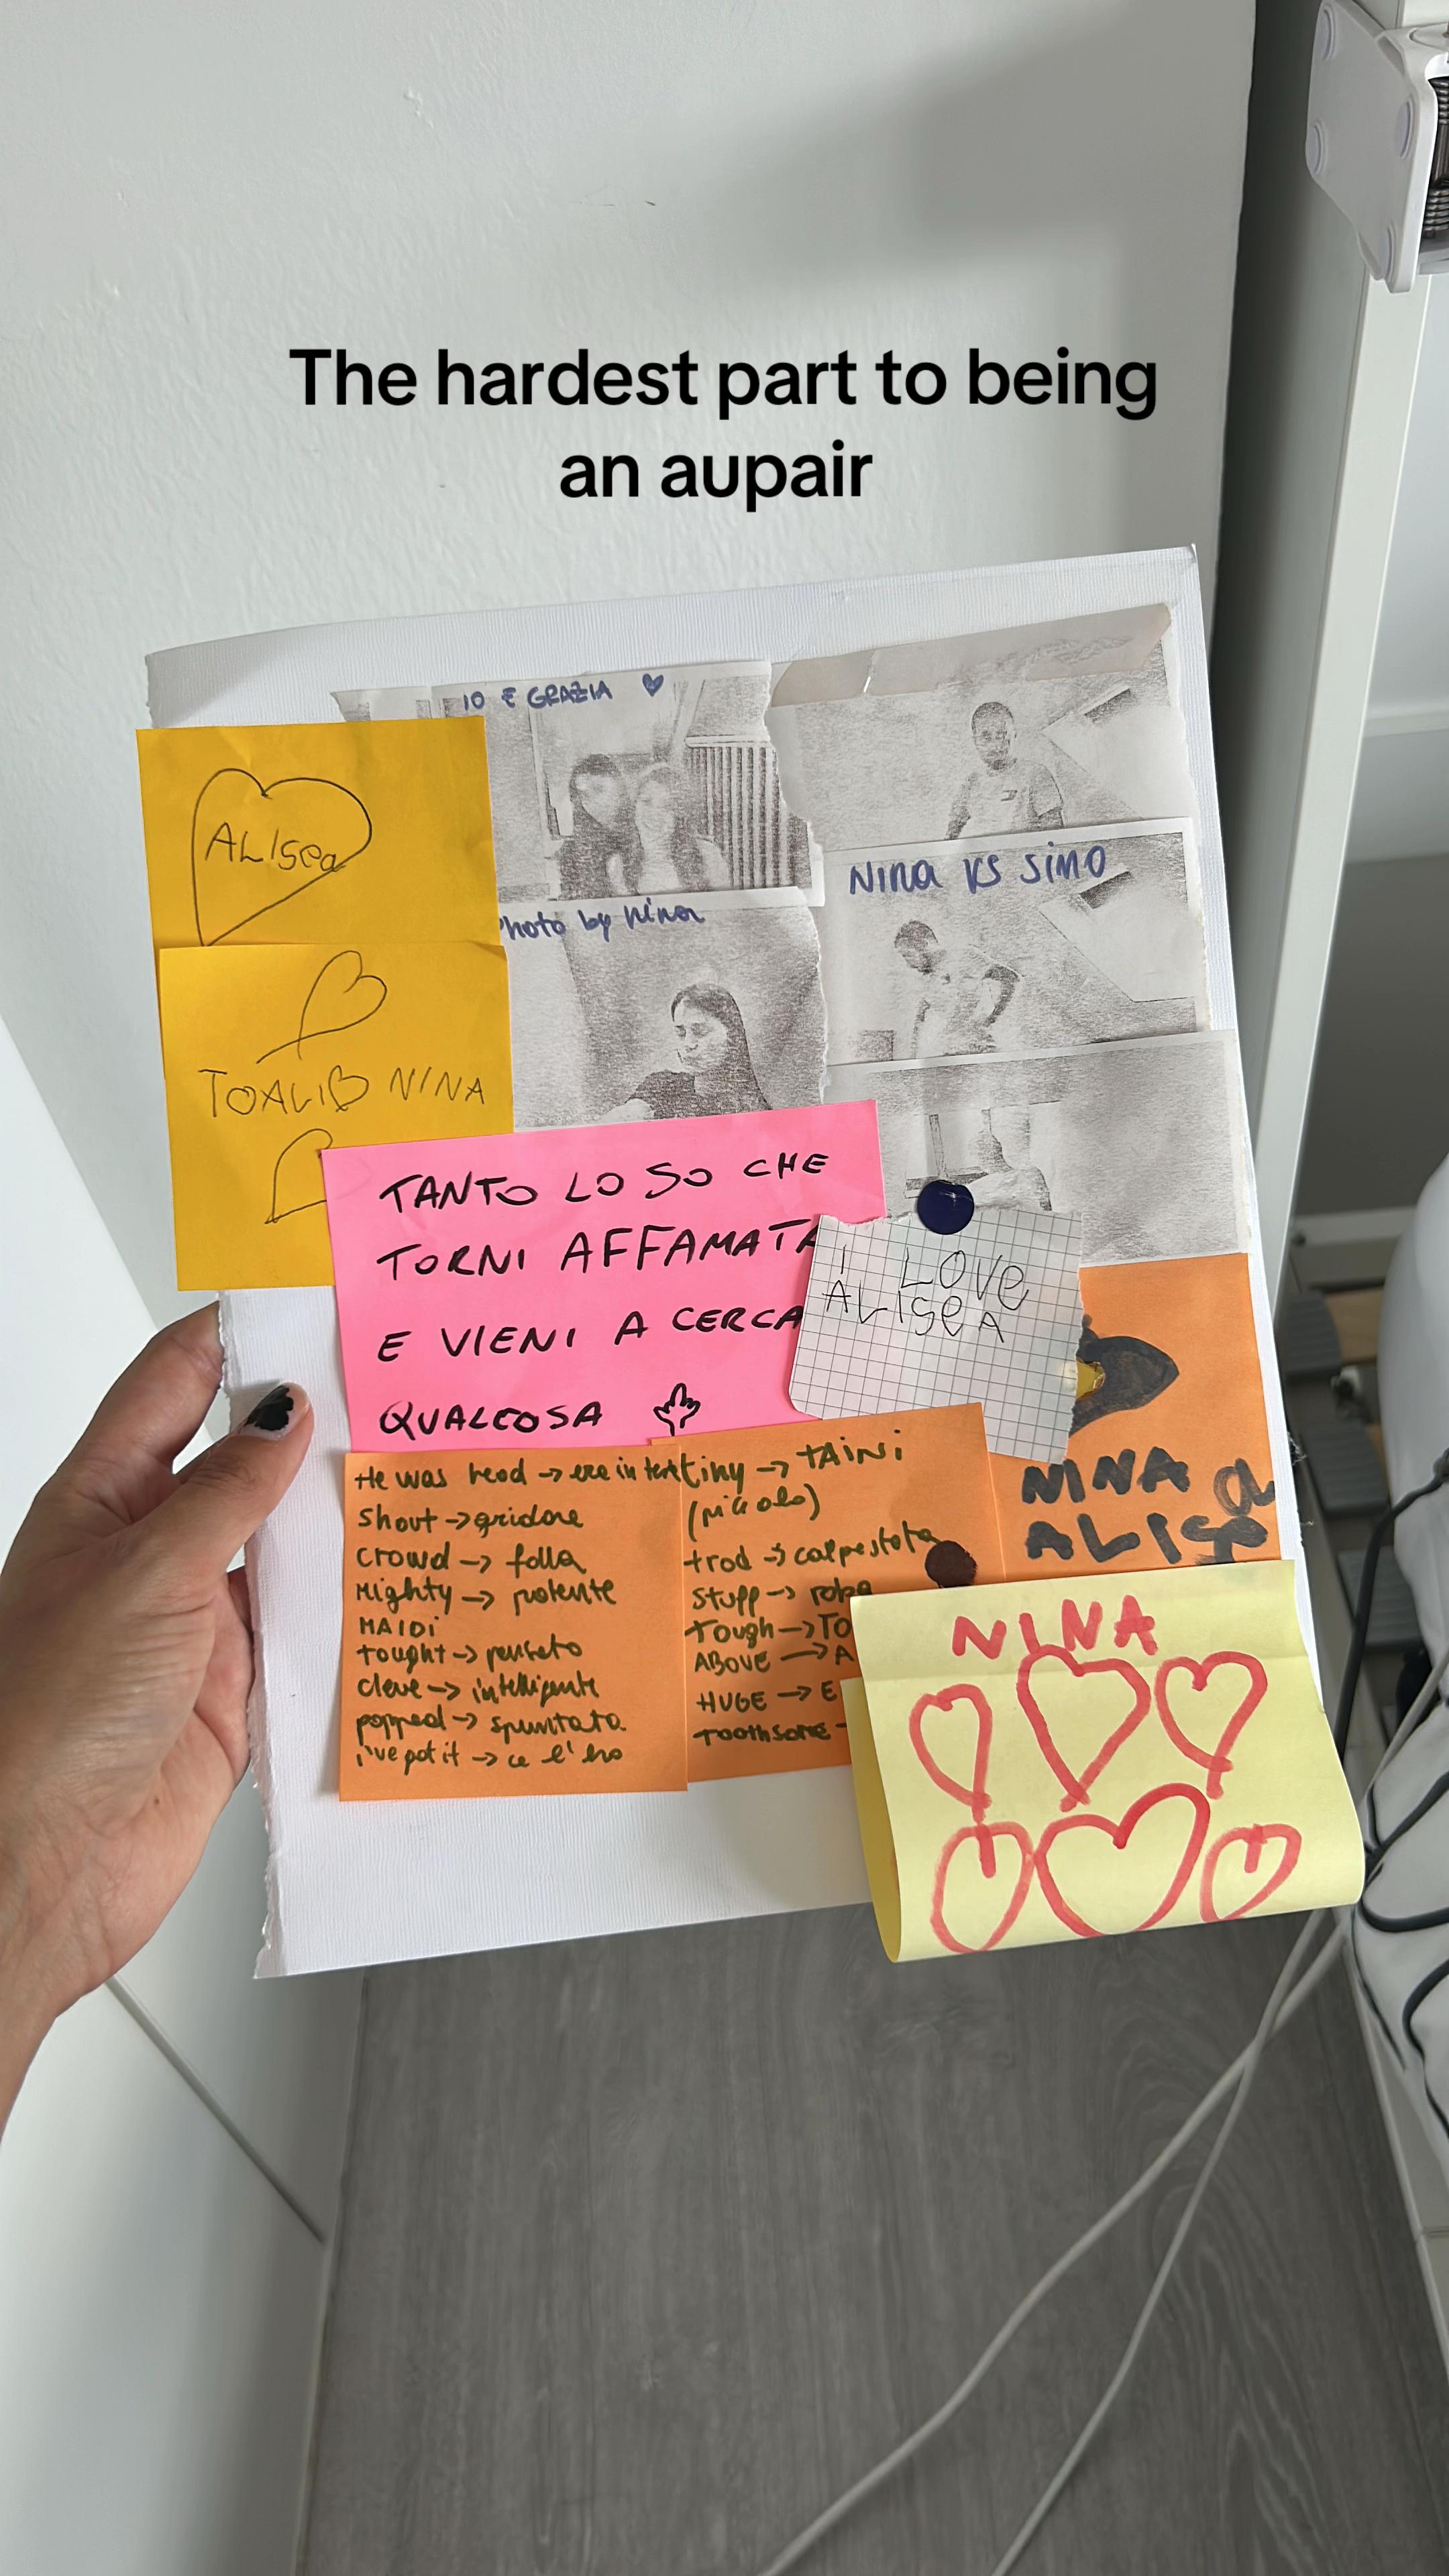 The hardest part to being
an aupair
IO E GRAZIA
ALISea
Photo by Nina
NINA VS SIMO
TOALI NINA
TANTO LO SO CHE
TORNI AFFAMATA
E VIENI A CERCA
QUALCOSA
I LOVE
ALISEA
He was head →
shout → gridare
crowd → folla
Mighty → potente
MAIDI
tought → pensato
cleve → intelligente
popped → spuntata
i've got it → ce l'ho
tiny → TAINI
(piccolo)
trod → calpestata
Stuff → roba
Tough → TO
ABOVE → A
HUGE → E
Toothsome
NINA a
ALISa
NINA